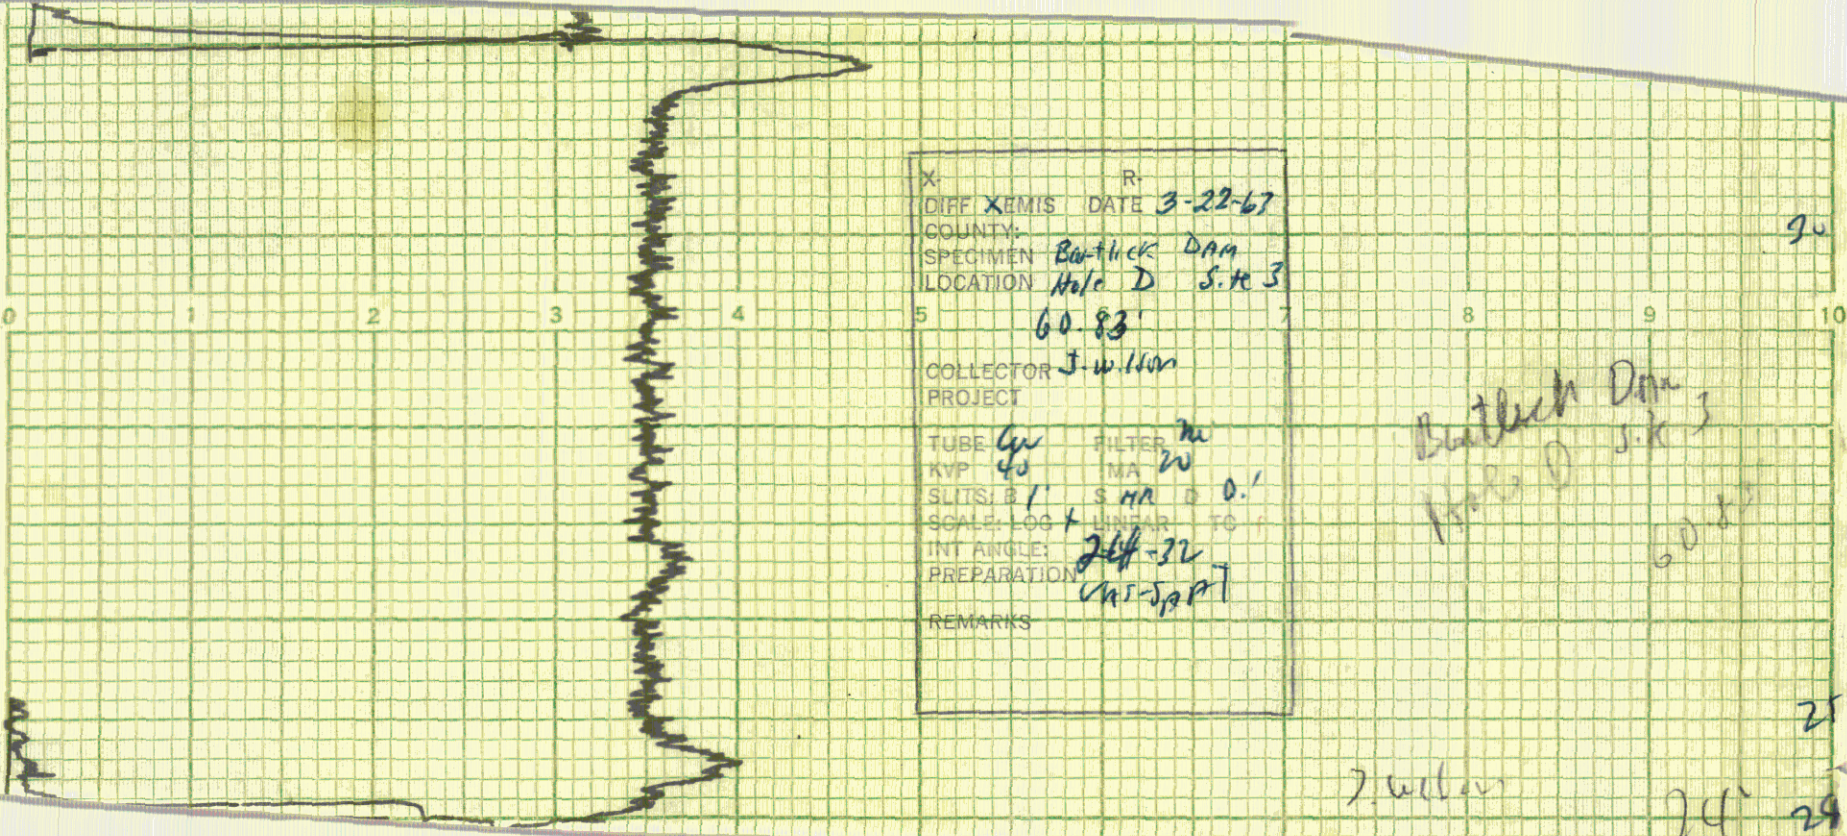 X- R-
DIFF XEMIS DATE 3-22-67
COUNTY:
SPECIMEN Bartlick DAM
LOCATION Hole D Site 3
60.83'
COLLECTOR J. Wilson
PROJECT
TUBE Cu FILTER Ni
KVP 40 MA 20
SLITS: B 1° S MR D 0.1
SCALE: LOG X LINEAR TC
INT ANGLE: 24-32
PREPARATION
REMARKS
0 1 2 3 4 5 6 7 8 9 10
30
Bartlick Dam
Hole D Site 3
60.83
25
J. Wilson
24° 24